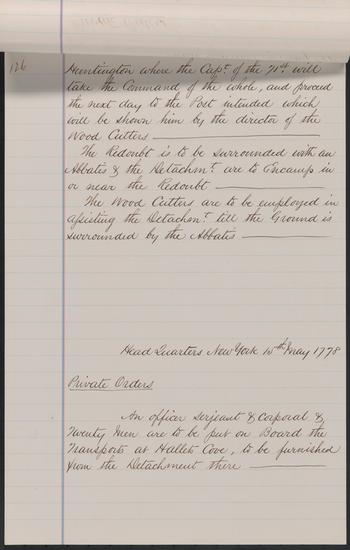 126
Huntington where the Capt. of the 71st. will
take the Command of the whole, and proceed
the next day to the Post intended which
will be shown him by the director of the
Wood Cutters
The Redoubt is to be surrounded with an
Abbatis & the Detachmt. are to Encamp in
or near the Redoubt
The Wood Cutters are to be employed in
assisting the Detachmt. till the Ground is
surrounded by the Abbatis
Head Quarters New York May 1778
Private Orders
An officer serjeant & Corporal &
Twenty Men are to be put on Board the
Transports at Hallets Cove, to be furnished
from the Detachment there